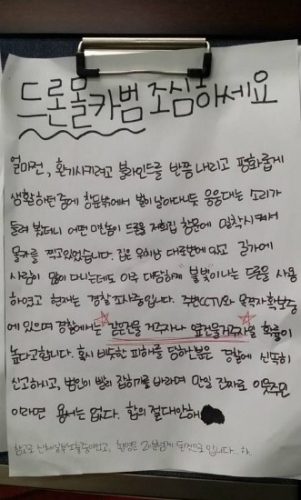 드론몰카범 조심하세요
얼마전, 환기시키려고 블라인드를 반쯤 내리고 평화롭게
생활하던중에 창문밖에서 빛이 날아다니듯 응응대는 소리가
들려 봤더니 어떤 미친놈이 드론을 저희집 창문에 밀착시켜서
몰카를 찍고있었습니다. 집은 위치상 대로변에 있고 길가에
사람이 많이 다니는데도 아주 대담하게 불빛이나는 드론을 사용
하였고 현재는 경찰 조사중입니다. 주변CCTV와 목격자확보중
에 있으며 경찰에서는 같은건물 거주자나 옆건물거주자일 확률이
높다고합니다. 혹시 비슷한 피해를 당하신분은 경찰에 신속히
신고하시고, 범인이 빨리 잡히기를 바라며 만일 진짜로 이웃주민
이라면 용서는 없다. 합의 절대안해